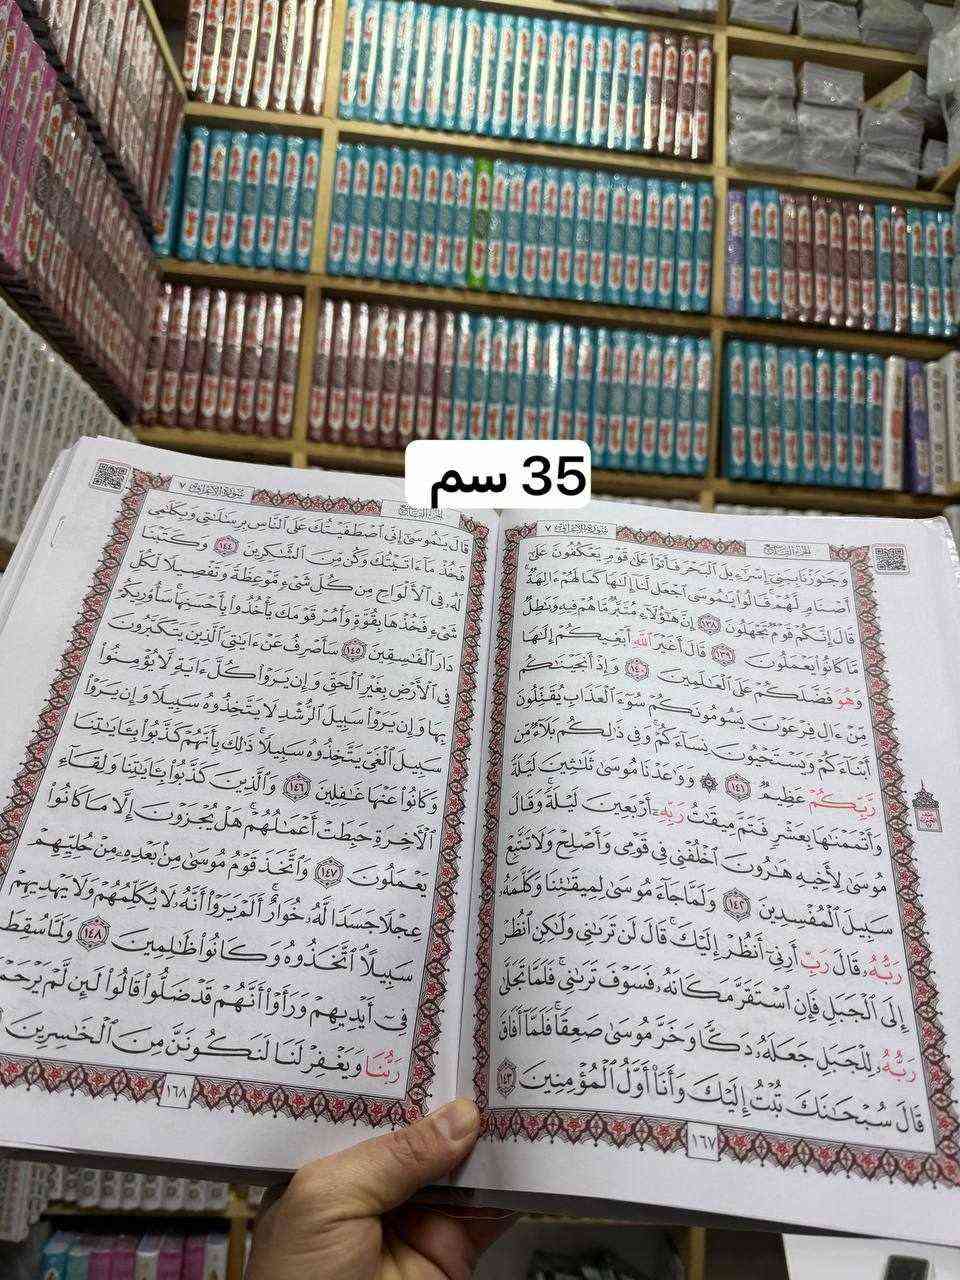 35 سم
سُورَةُ الأَعْرَافِ ٧
الجُزْءُ التَّاسِعُ
وَجَٰوَزۡنَا بِبَنِيٓ إِسۡرَٰٓءِيلَ ٱلۡبَحۡرَ فَأَتَوۡاْ عَلَىٰ قَوۡمٖ يَعۡكُفُونَ عَلَىٰٓ
أَصۡنَامٖ لَّهُمۡۚ قَالُواْ يَٰمُوسَى ٱجۡعَل لَّنَآ إِلَٰهٗا كَمَا لَهُمۡ ءَالِهَةٞۚ
قَالَ إِنَّكُمۡ قَوۡمٞ تَجۡهَلُونَ ١٣٨ إِنَّ هَٰٓؤُلَآءِ مُتَبَّرٞ مَّا هُمۡ فِيهِ وَبَٰطِلٞ
مَّا كَانُواْ يَعۡمَلُونَ ١٣٩ قَالَ أَغَيۡرَ ٱللَّهِ أَبۡغِيكُمۡ إِلَٰهٗا
وَهُوَ فَضَّلَكُمۡ عَلَى ٱلۡعَٰلَمِينَ ١٤٠ وَإِذۡ أَنجَيۡنَٰكُم
مِّنۡ ءَالِ فِرۡعَوۡنَ يَسُومُونَكُمۡ سُوٓءَ ٱلۡعَذَابِ يُقَتِّلُونَ
أَبۡنَآءَكُمۡ وَيَسۡتَحۡيُونَ نِسَآءَكُمۡۚ وَفِي ذَٰلِكُم بَلَآءٞ مِّن
رَّبِّكُمۡ عَظِيمٞ ١٤١ ۞ وَوَٰعَدۡنَا مُوسَىٰ ثَلَٰثِينَ لَيۡلَةٗ
وَأَتۡمَمۡنَٰهَا بِعَشۡرٖ فَتَمَّ مِيقَٰتُ رَبِّهِۦٓ أَرۡبَعِينَ لَيۡلَةٗۚ وَقَالَ
مُوسَىٰ لِأَخِيهِ هَٰرُونَ ٱخۡلُفۡنِي فِي قَوۡمِي وَأَصۡلِحۡ وَلَا تَتَّبِعۡ
سَبِيلَ ٱلۡمُفۡسِدِينَ ١٤٢ وَلَمَّا جَآءَ مُوسَىٰ لِمِيقَٰتِنَا وَكَلَّمَهُۥ
رَبُّهُۥ قَالَ رَبِّ أَرِنِيٓ أَنظُرۡ إِلَيۡكَۚ قَالَ لَن تَرَىٰنِي وَلَٰكِنِ ٱنظُرۡ
إِلَى ٱلۡجَبَلِ فَإِنِ ٱسۡتَقَرَّ مَكَانَهُۥ فَسَوۡفَ تَرَىٰنِيۚ فَلَمَّا تَجَلَّىٰ
رَبُّهُۥ لِلۡجَبَلِ جَعَلَهُۥ دَكّٗا وَخَرَّ مُوسَىٰ صَعِقٗاۚ فَلَمَّآ أَفَاقَ
قَالَ سُبۡحَٰنَكَ تُبۡتُ إِلَيۡكَ وَأَنَا۠ أَوَّلُ ٱلۡمُؤۡمِنِينَ ١٤٣
١٦٧
سُورَةُ الأَعْرَافِ ٧
الجُزْءُ التَّاسِعُ
قَالَ يَٰمُوسَىٰٓ إِنِّي ٱصۡطَفَيۡتُكَ عَلَى ٱلنَّاسِ بِرِسَٰلَٰتِي وَبِكَلَٰمِي
فَخُذۡ مَآ ءَاتَيۡتُكَ وَكُن مِّنَ ٱلشَّٰكِرِينَ ١٤٤ وَكَتَبۡنَا
لَهُۥ فِي ٱلۡأَلۡوَاحِ مِن كُلِّ شَيۡءٖ مَّوۡعِظَةٗ وَتَفۡصِيلٗا لِّكُلِّ
شَيۡءٖ فَخُذۡهَا بِقُوَّةٖ وَأۡمُرۡ قَوۡمَكَ يَأۡخُذُواْ بِأَحۡسَنِهَاۚ سَأُوْرِيكُمۡ
دَارَ ٱلۡفَٰسِقِينَ ١٤٥ سَأَصۡرِفُ عَنۡ ءَايَٰتِيَ ٱلَّذِينَ يَتَكَبَّرُونَ
فِي ٱلۡأَرۡضِ بِغَيۡرِ ٱلۡحَقِّ وَإِن يَرَوۡاْ كُلَّ ءَايَةٖ لَّا يُؤۡمِنُواْ
بِهَا وَإِن يَرَوۡاْ سَبِيلَ ٱلرُّشۡدِ لَا يَتَّخِذُوهُ سَبِيلٗا وَإِن يَرَوۡاْ
سَبِيلَ ٱلۡغَيِّ يَتَّخِذُوهُ سَبِيلٗاۚ ذَٰلِكَ بِأَنَّهُمۡ كَذَّبُواْ بِـَٔايَٰتِنَا
وَكَانُواْ عَنۡهَا غَٰفِلِينَ ١٤٦ وَٱلَّذِينَ كَذَّبُواْ بِـَٔايَٰتِنَا وَلِقَآءِ
ٱلۡأٓخِرَةِ حَبِطَتۡ أَعۡمَٰلُهُمۡۚ هَلۡ يُجۡزَوۡنَ إِلَّا مَا كَانُواْ
يَعۡمَلُونَ ١٤٧ وَٱتَّخَذَ قَوۡمُ مُوسَىٰ مِنۢ بَعۡدِهِۦ مِنۡ حُلِيِّهِمۡ
عِجۡلٗا جَسَدٗا لَّهُۥ خُوَارٌۚ أَلَمۡ يَرَوۡاْ أَنَّهُۥ لَا يُكَلِّمُهُمۡ وَلَا يَهۡدِيهِمۡ
سَبِيلًاۘ ٱتَّخَذُوهُ وَكَانُواْ ظَٰلِمِينَ ١٤٨ وَلَمَّا سُقِطَ
فِيٓ أَيۡدِيهِمۡ وَرَأَوۡاْ أَنَّهُمۡ قَدۡ ضَلُّواْ قَالُواْ لَئِن لَّمۡ يَرۡحَمۡ
رَبُّنَا وَيَغۡفِرۡ لَنَا لَنَكُونَنَّ مِنَ ٱلۡخَٰسِرِينَ
١٦٨